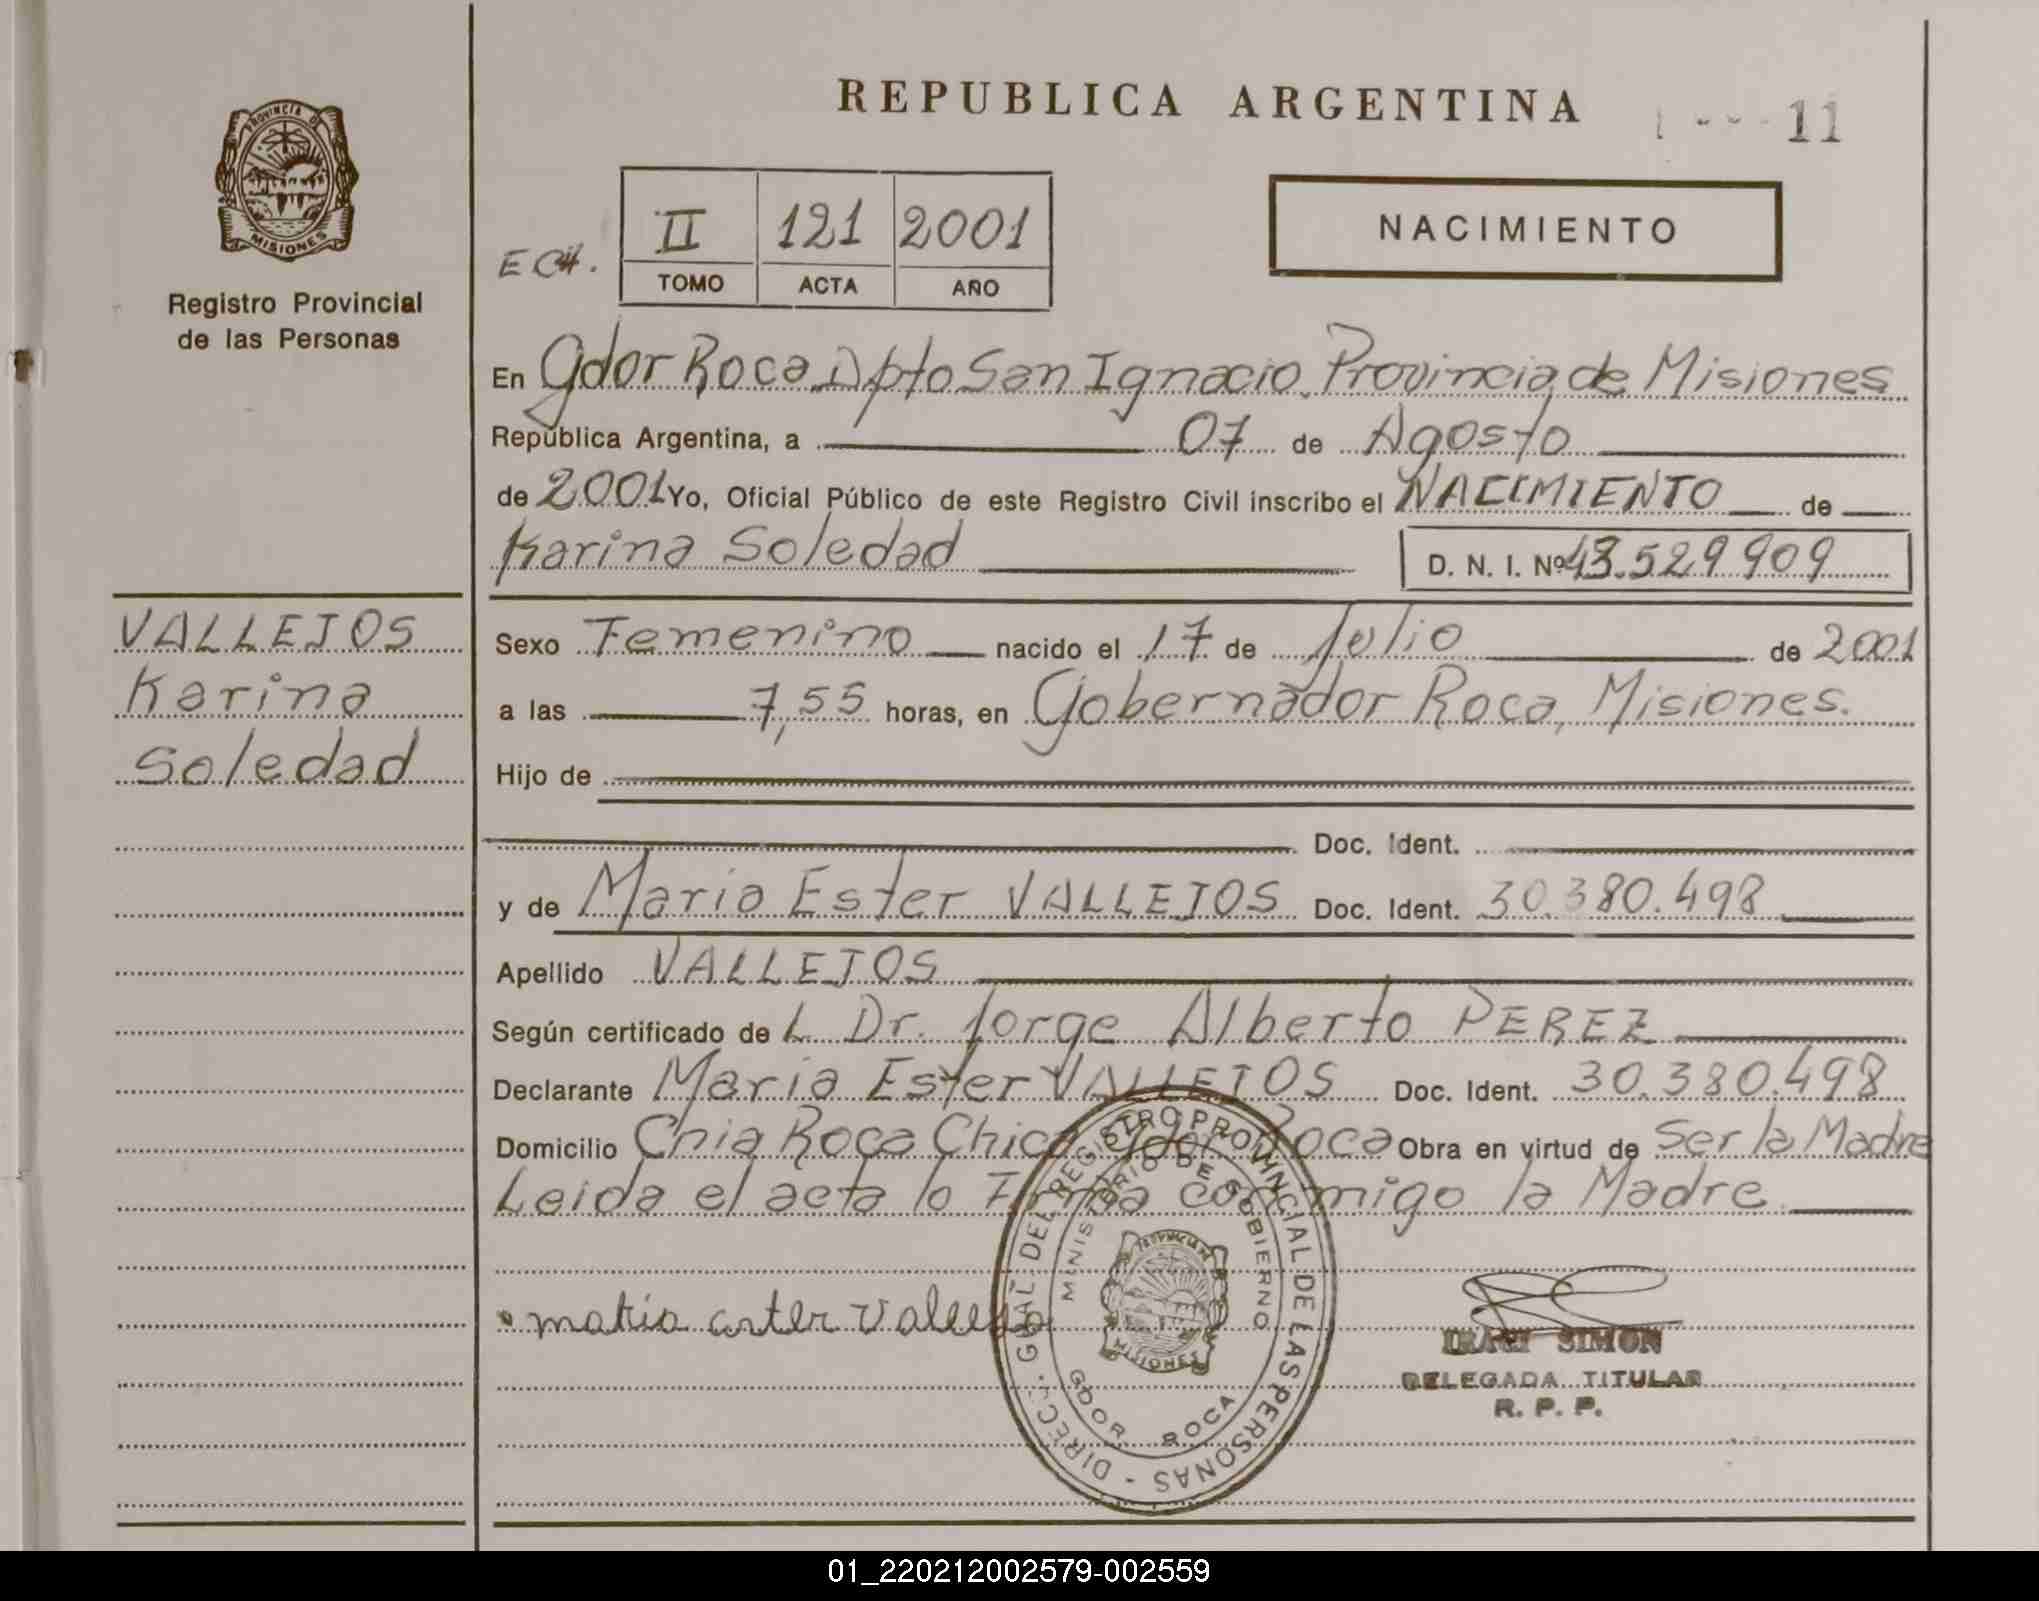 REPUBLICA ARGENTINA
11
PROVINCIA DE
MISIONES
Registro Provincial
de las Personas
ECH.
II 121 2001
TOMO ACTA AÑO
NACIMIENTO
En Gdor Roca Dpto San Ignacio, Provincia de Misiones
República Argentina, a 07 de Agosto
de 2001 Yo, Oficial Público de este Registro Civil inscribo el NACIMIENTO de
Karina Soledad
D. N. I. Nº 43.529.909
VALLEJOS
Karina
Soledad
Sexo Femenino nacido el 17 de Julio de 2001
a las 7,55 horas, en Gobernador Roca, Misiones.
Hijo de
Doc. Ident.
y de Maria Ester VALLEJOS Doc. Ident. 30.380.498
Apellido VALLEJOS
Según certificado de L Dr. Jorge Alberto PEREZ
Declarante Maria Ester VALLEJOS Doc. Ident. 30.380.498
Domicilio Cnia Roca Chica Gdor Roca Obra en virtud de Ser la Madre
Leida el acta lo Firma conmigo la Madre
maria ester Vallejo
DIREC. GRAL DEL REGISTRO PROVINCIAL DE LAS PERSONAS -
MINISTERIO DE GOBIERNO
PROVINCIA DE
MISIONES
GDOR. ROCA
SIMON
DELEGADA TITULAR
R. P. P.
01_220212002579-002559